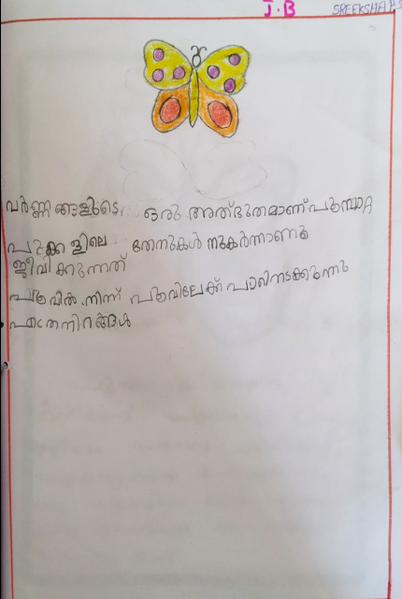 I.B
SREEKSHA P S
വർണ്ണങ്ങളുടെ ഒരു അത്ഭുതമാണ് പൂമ്പാറ്റ
പൂക്കളിലെ തേനുകൾ നുകർന്നാണു
ജീവിക്കുന്നത്
പൂവിൽ നിന്ന് പൂവിലേക്ക് പാറിനടക്കുന്നു